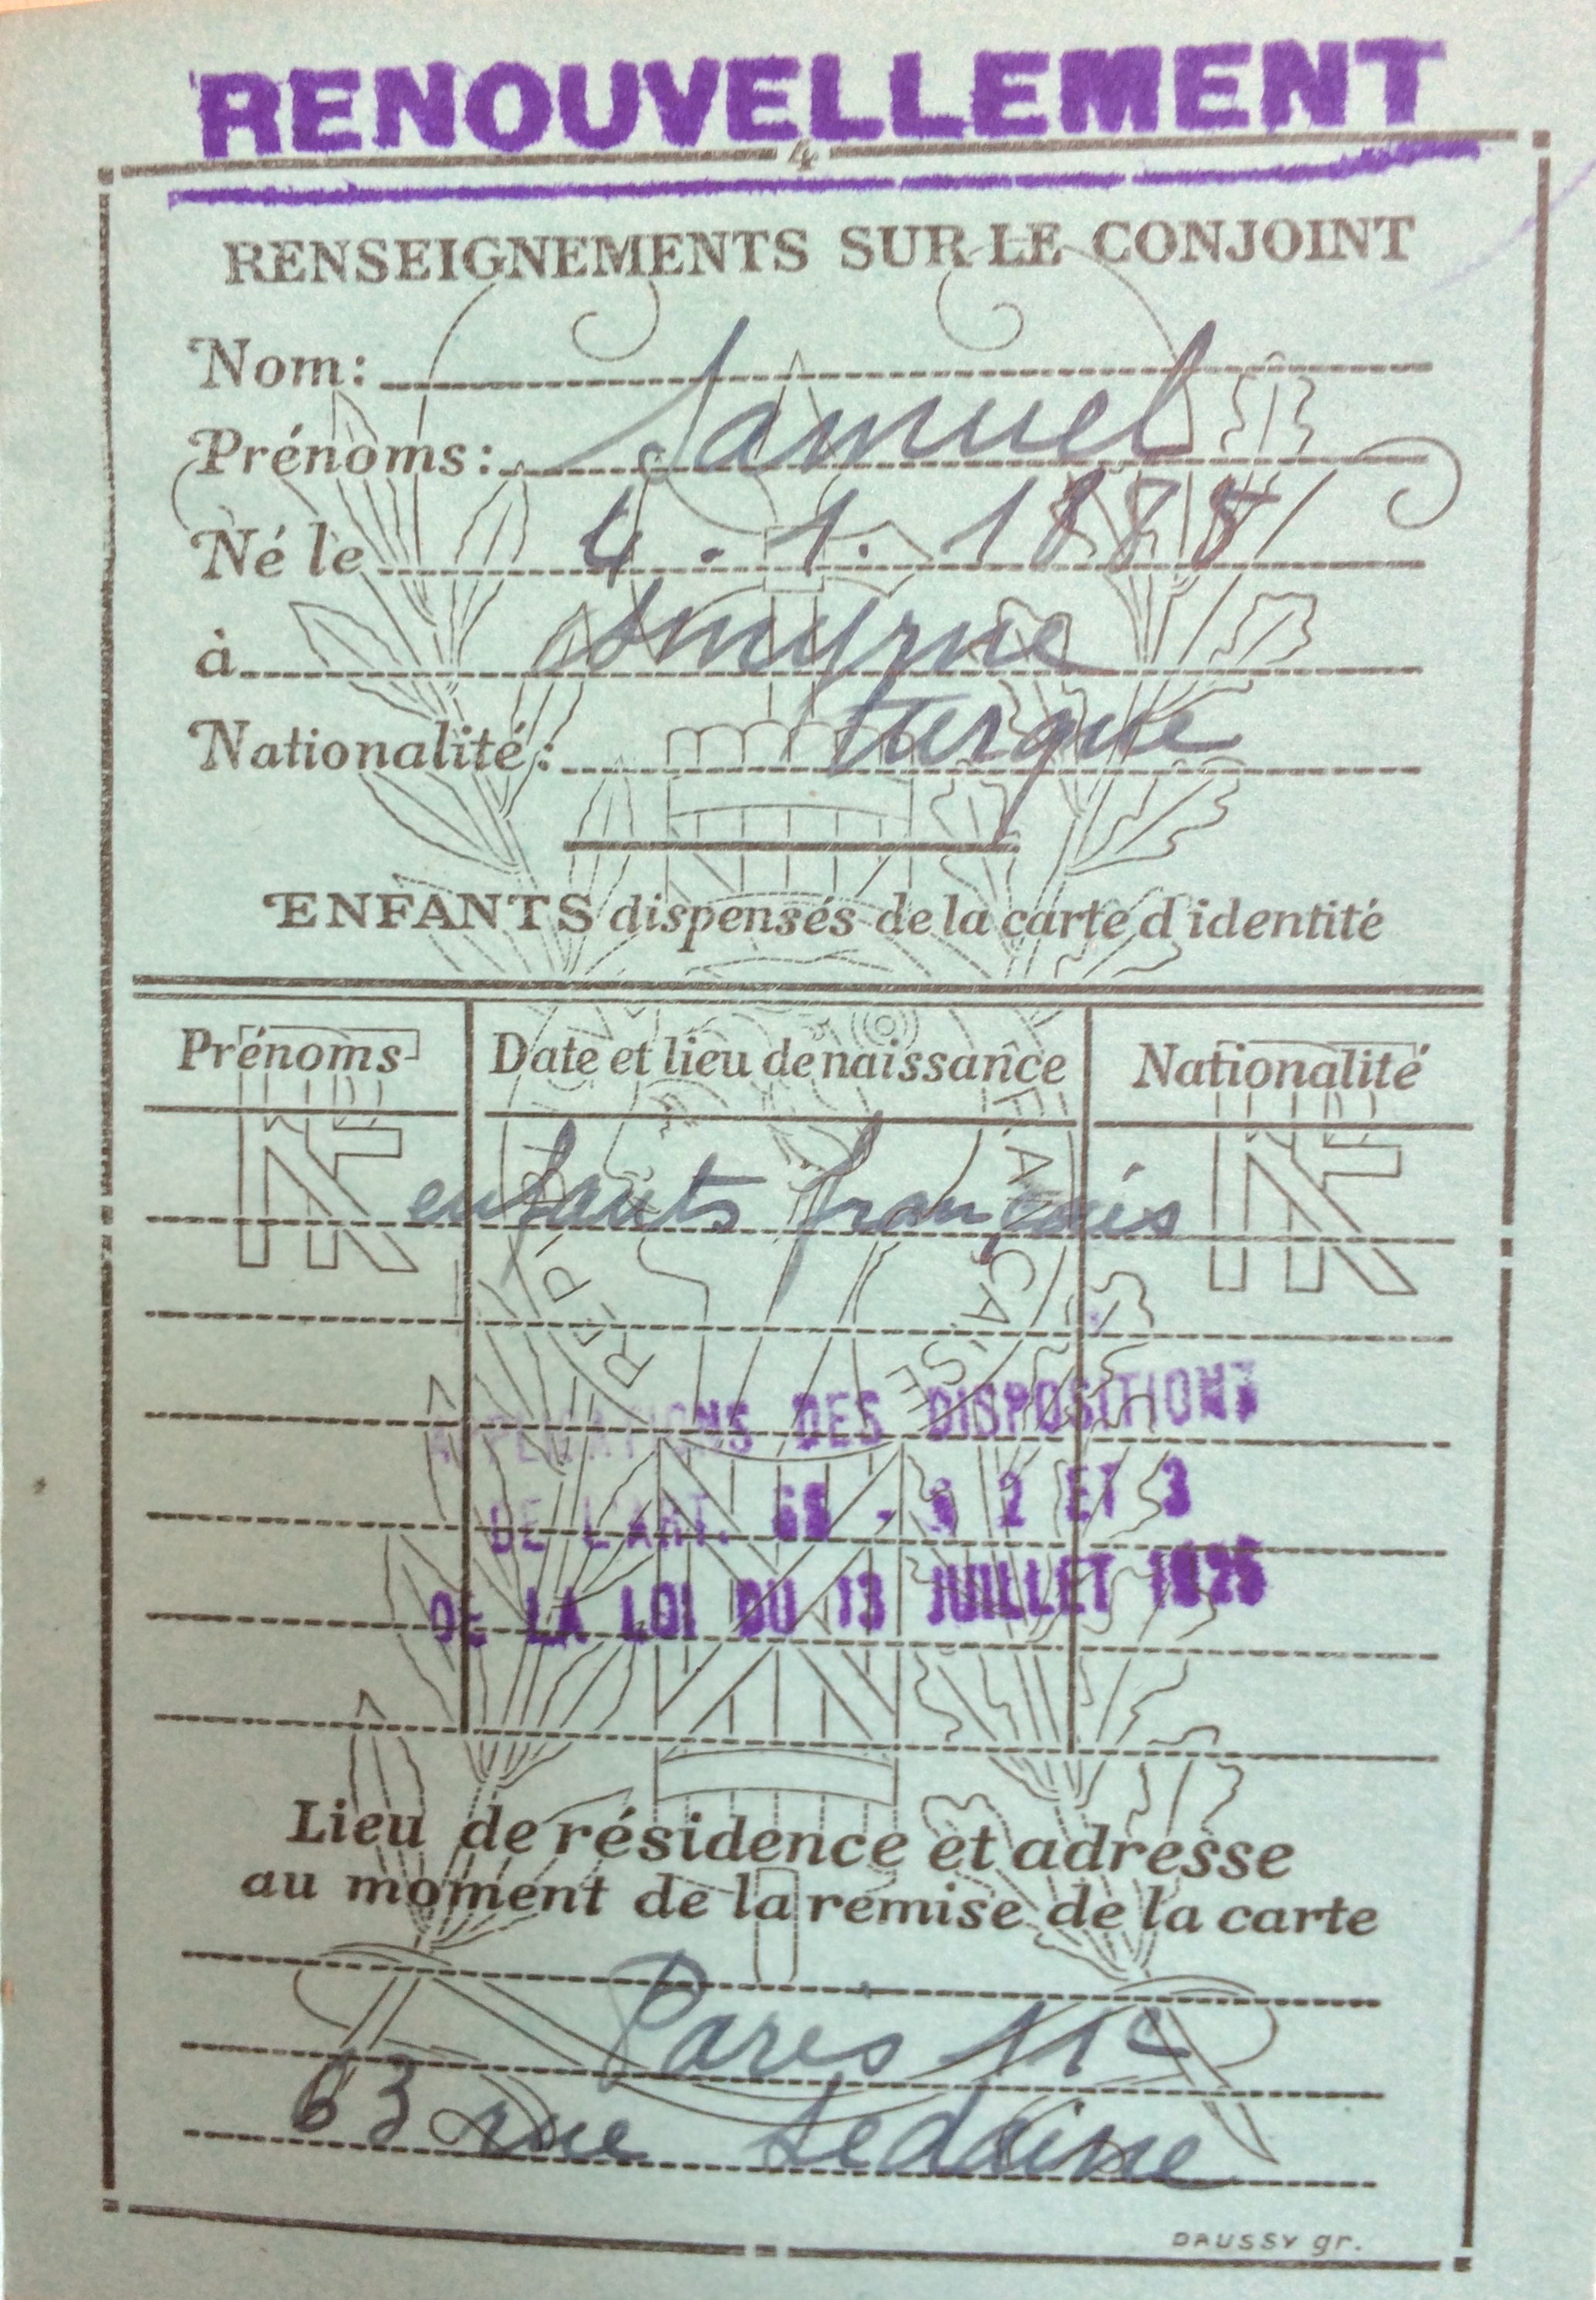 RENOUVELLEMENT
4
RENSEIGNEMENTS SUR LE CONJOINT
Nom:
Prénoms: Samuel
Né le 4.1.1885
à Smyrne
Nationalité: turque
ENFANTS dispensés de la carte d'identité
Prénoms Date et lieu de naissance Nationalité
enfants français
RF RF
RÉP FRANÇAISE
APPLICATIONS DES DISPOSITIONS
DE L'ART. 68 - § 2 ET 3
DE LA LOI DU 13 JUILLET 1925
Lieu de résidence et adresse
au moment de la remise de la carte
Paris 11e
63 rue Sedaine
DAUSSY gr.